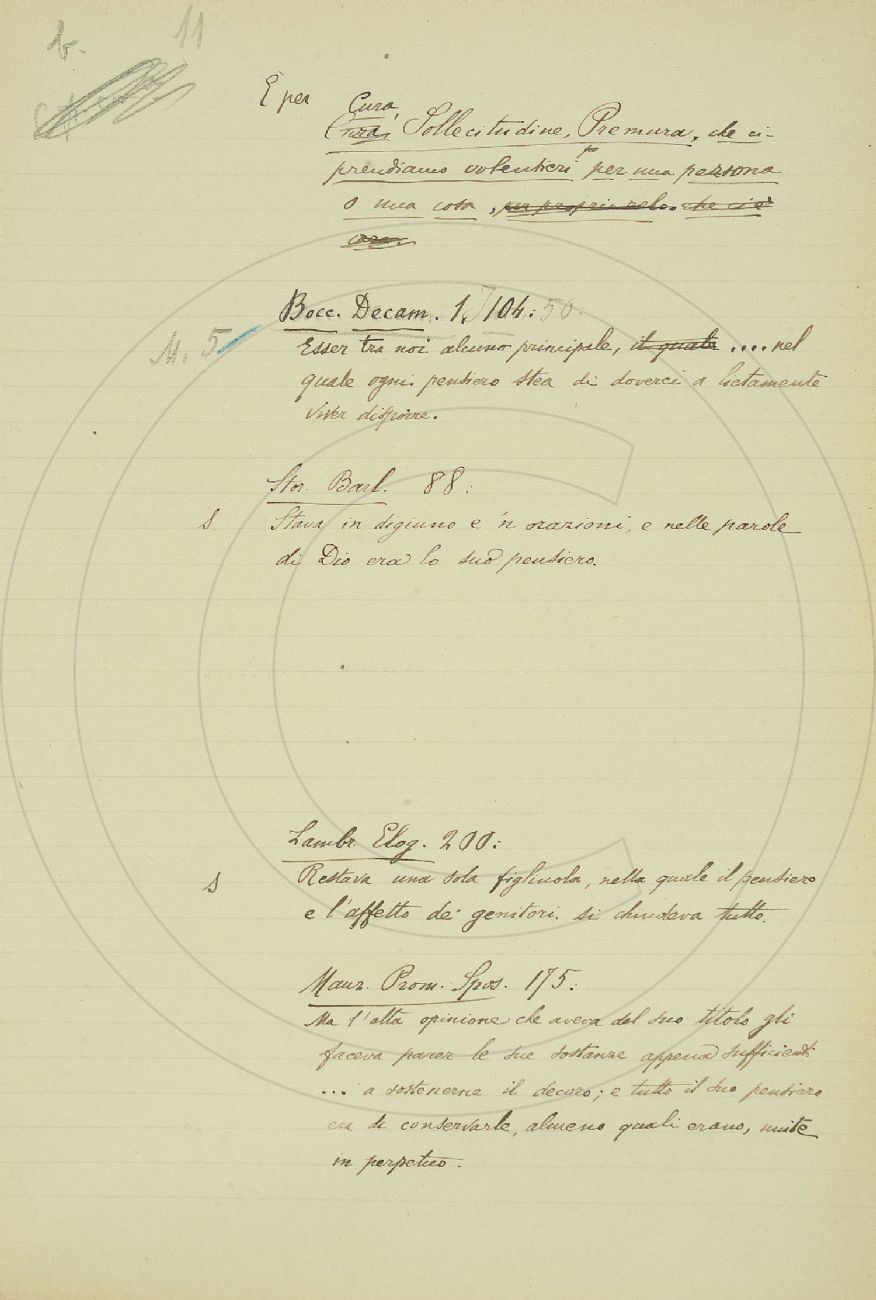 b. 11
E per Cura,
Cura, Sollecitudine, Premura, che ci
prendiamo volentieri per una persona
o una cosa, per proprio zelo. che ci è
cara.
Bocc. Decam. 1, 104: 50.
M. 5
Esser tra noi alcuno principale, il quale .... nel
quale ogni pensiero stea di doverci a lietamente
viver disporre.
Stor. Barl. 88:
S. Stava in digiuno e 'n orazioni, e nelle parole
di Dio era lo suo pensiero.
Lambr. Elog. 200:
S Restava una sola figliuola, nella quale il pensiero
e l'affetto de' genitori si chiudeva tutto.
Manz. Prom. Spos. 175:
Ma l'alta opinione che aveva del suo titolo gli
faceva parer le sue sostanze appena sufficienti
... a sostenerne il decoro; e tutto il suo pensiero
era di conservarle, almeno quali erano, unite
in perpetuo.